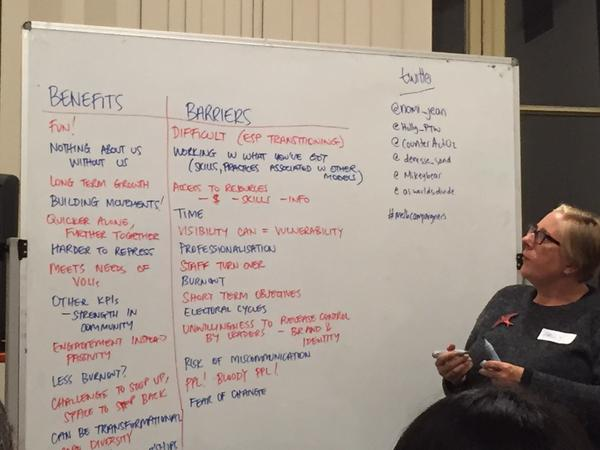 BENEFITS
FUN!
NOTHING ABOUT US
WITHOUT US
LONG TERM GROWTH
BUILDING MOVEMENTS!
QUICKER ALONE,
FURTHER TOGETHER
HARDER TO REPRESS
MEETS NEEDS OF
VOLS
OTHER KPIs
– STRENGTH IN
COMMUNITY
ENGAGEMENT INSTEAD
PASSIVITY
LESS BURNOUT?
CHALLENGE TO STEP UP,
SPACE TO STEP BACK
CAN BE TRANSFORMATIONAL
DIVERSITY
BARRIERS
DIFFICULT (ESP TRANSITIONING)
WORKING W WHAT YOU'VE GOT
(SKILLS, PRACTICES ASSOCIATED W OTHER
MODELS)
ACCESS TO RESOURCES
– $ – SKILLS – INFO
TIME
VISIBILITY CAN = VULNERABILITY
PROFESSIONALISATION
STAFF TURN OVER
BURNOUT
SHORT TERM OBJECTIVES
ELECTORAL CYCLES
UNWILLINGNESS TO RELEASE CONTROL
BY LEADERS – BRAND &
IDENTITY
RISK OF MISCOMMUNICATION
PPL! BLOODY PPL!
FEAR OF CHANGE
twitter
@nowi_jean
@Holly_PTW
@CounterActOz
@Mikeybear
@asworldsdivide
#melbcampaigners